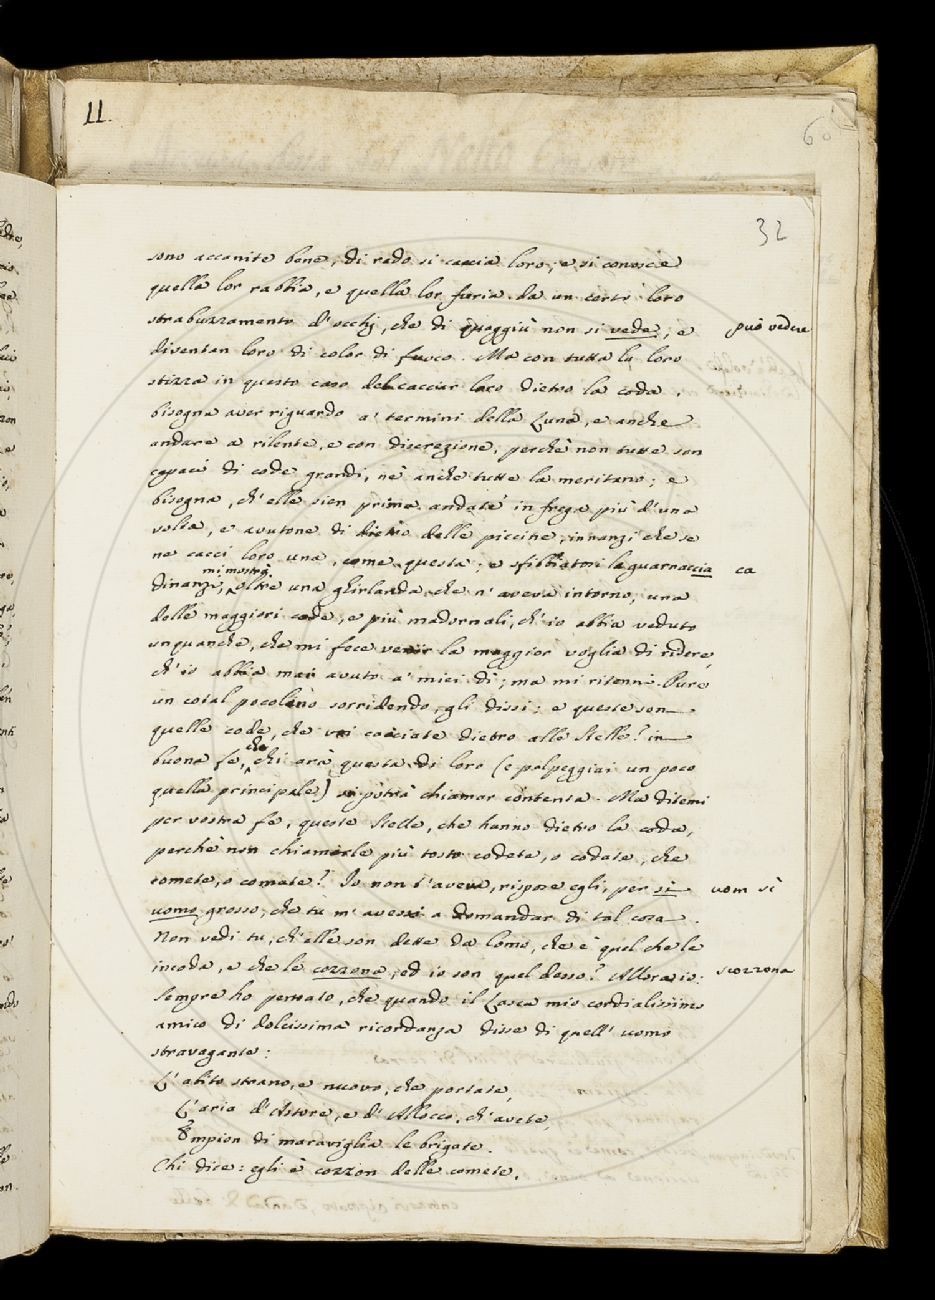 11.
60
32
sono accanite bene, di rado si caccia loro; e si conosce
quella lor rabbia, e quella lor furia da un certo loro
strabuzzamento d'occhj, che di quaggiù non si vede; e può vedere
diventan loro di color di fuoco. Ma con tutta la loro
stizza in questo caso del cacciar loro dietro la coda,
bisogna aver riguardo a' termini della Luna, e anche
andare a rilente, e con discrezione, perchè non tutte son
capaci di code grandi, nè anche tutte la meritano; e
bisogna, ch'elle sien prima andate in frega più d'una
volta, e avutone di dietro delle piccine, innanzi che se
ne cacci loro una, come questa; e sfibbiatosi la guarnaccia ca
mi mostrò
dinanzi, oltre una ghirlanda, che n'aveva intorno, una
delle maggiori code, e più madornali, ch'io abbia veduto
unquanche, che mi fece venir la maggior voglia di ridere,
ch'io abbia mai avuto a' miei dì; ma mi ritenni. Pure
un cotal pocolino sorridendo, gli dissi: e queste son
quelle code, che voi cacciate dietro alle Stelle? in
che
buona fe, chi arà questa di loro (e palpeggiai un poco
quella principale) si potrà chiamar contenta. Ma ditemi
per vostra fe, queste Stelle, che hanno dietro la coda,
perchè non chiamarle più tosto codete, o codate, che
comete, o comate? Io non t'aveva, rispose egli, per sì uom sì
uomo grosso, che tu m'avessi a domandar di tal cosa.
Non vedi tu, ch'elle son dette da como, che è quel che le
incoda, e che le cozzona, ed io son quel desso? Allora io: scozzona
sempre ho pensato, che quando il Lasca mio cordialissimo
amico di dolcissima ricordanza disse di quell'uomo
stravagante:
L'abito strano, e nuovo, che portate,
L'aria d'Astore, e d'Allocco, ch'avete,
Empion di maraviglia le brigate.
Chi dice: egli è cozzon delle comete,